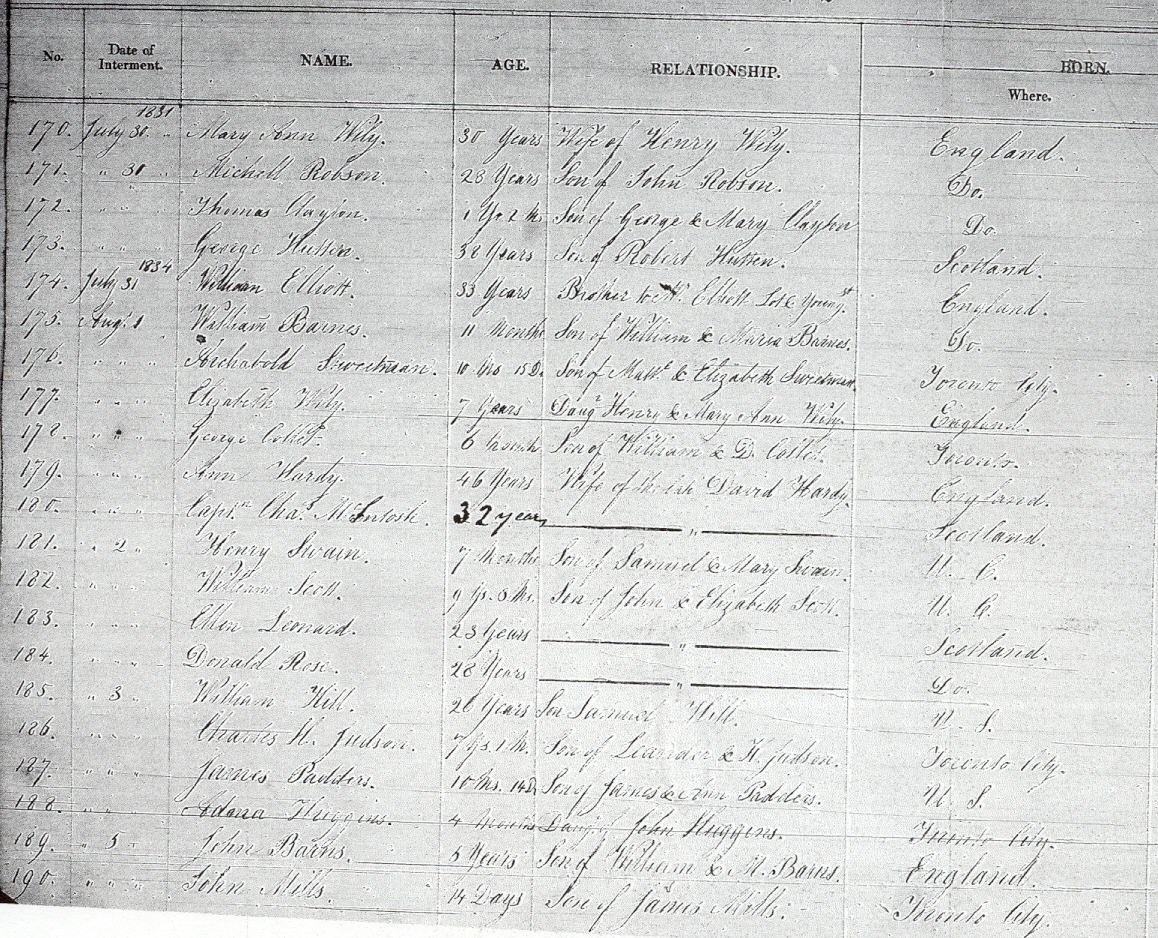 No. Date of Interment. NAME. AGE. RELATIONSHIP. BORN. Where.
1831
170. July 30. " Mary Ann Wily. 30 Years Wife of Henry Wily. England.
171. " 30 " Michell Robson. 28 Years Son of John Robson. Do.
172. " " " Thomas Clayton. 1 Yr 2 Ms Son of George & Mary Clayton Do.
173. " " " George Hutten. 38 Years Son of Robert Hutten. Scotland.
1834
174. July 31 William Elliott. 33 Years Brother to Elliott Lot & Young st England.
175. Augt 1 William Barnes. 11 Months Son of William & Maria Barnes. Do.
176. " " " Archabold Sweetman. 10 Mo 15 D. Son of Matt. & Elizabeth Sweetman. Toronto City.
177. " " " Elizabeth Wily. 7 Years Daug. Henry & Mary Ann Wily. England.
178. " " " George Collet. 6 Month Son of William & D. Collet. Toronto.
179. " " " Ann Hardy. 46 Years Wife of the late David Hardy. England.
180. " " " Captn. Chas. McIntosh. 32 years " Scotland.
181. " 2 " Henry Swain. 7 Months Son of Samuel & Mary Swain. U. C.
182. " " William Scott. 9 Ys. 8 Ms. Son of John & Elizabeth Scott. U. C.
183. " " " Ellen Leonard. 23 Years " Scotland.
184. " " " Donald Rose. 28 Years " Do.
185. " 3 " William Hill. 26 Years Son Samuel Hill. U. S.
186. Charles H. Judson. 7 Ys. 1 M. Son of Leander & H. Judson. Toronto City.
187. " " " James Padders. 10 Ms. 14 D. Son of James & Ann Padders. U. S.
188. " " Adana Huggins. 4 Months Daug. of John Huggins. Toronto City.
189. " 5 " John Barns. 5 Years Son of William & M. Barns. England.
190. " " " John Mills. 14 Days Son of James Mills. Toronto City.